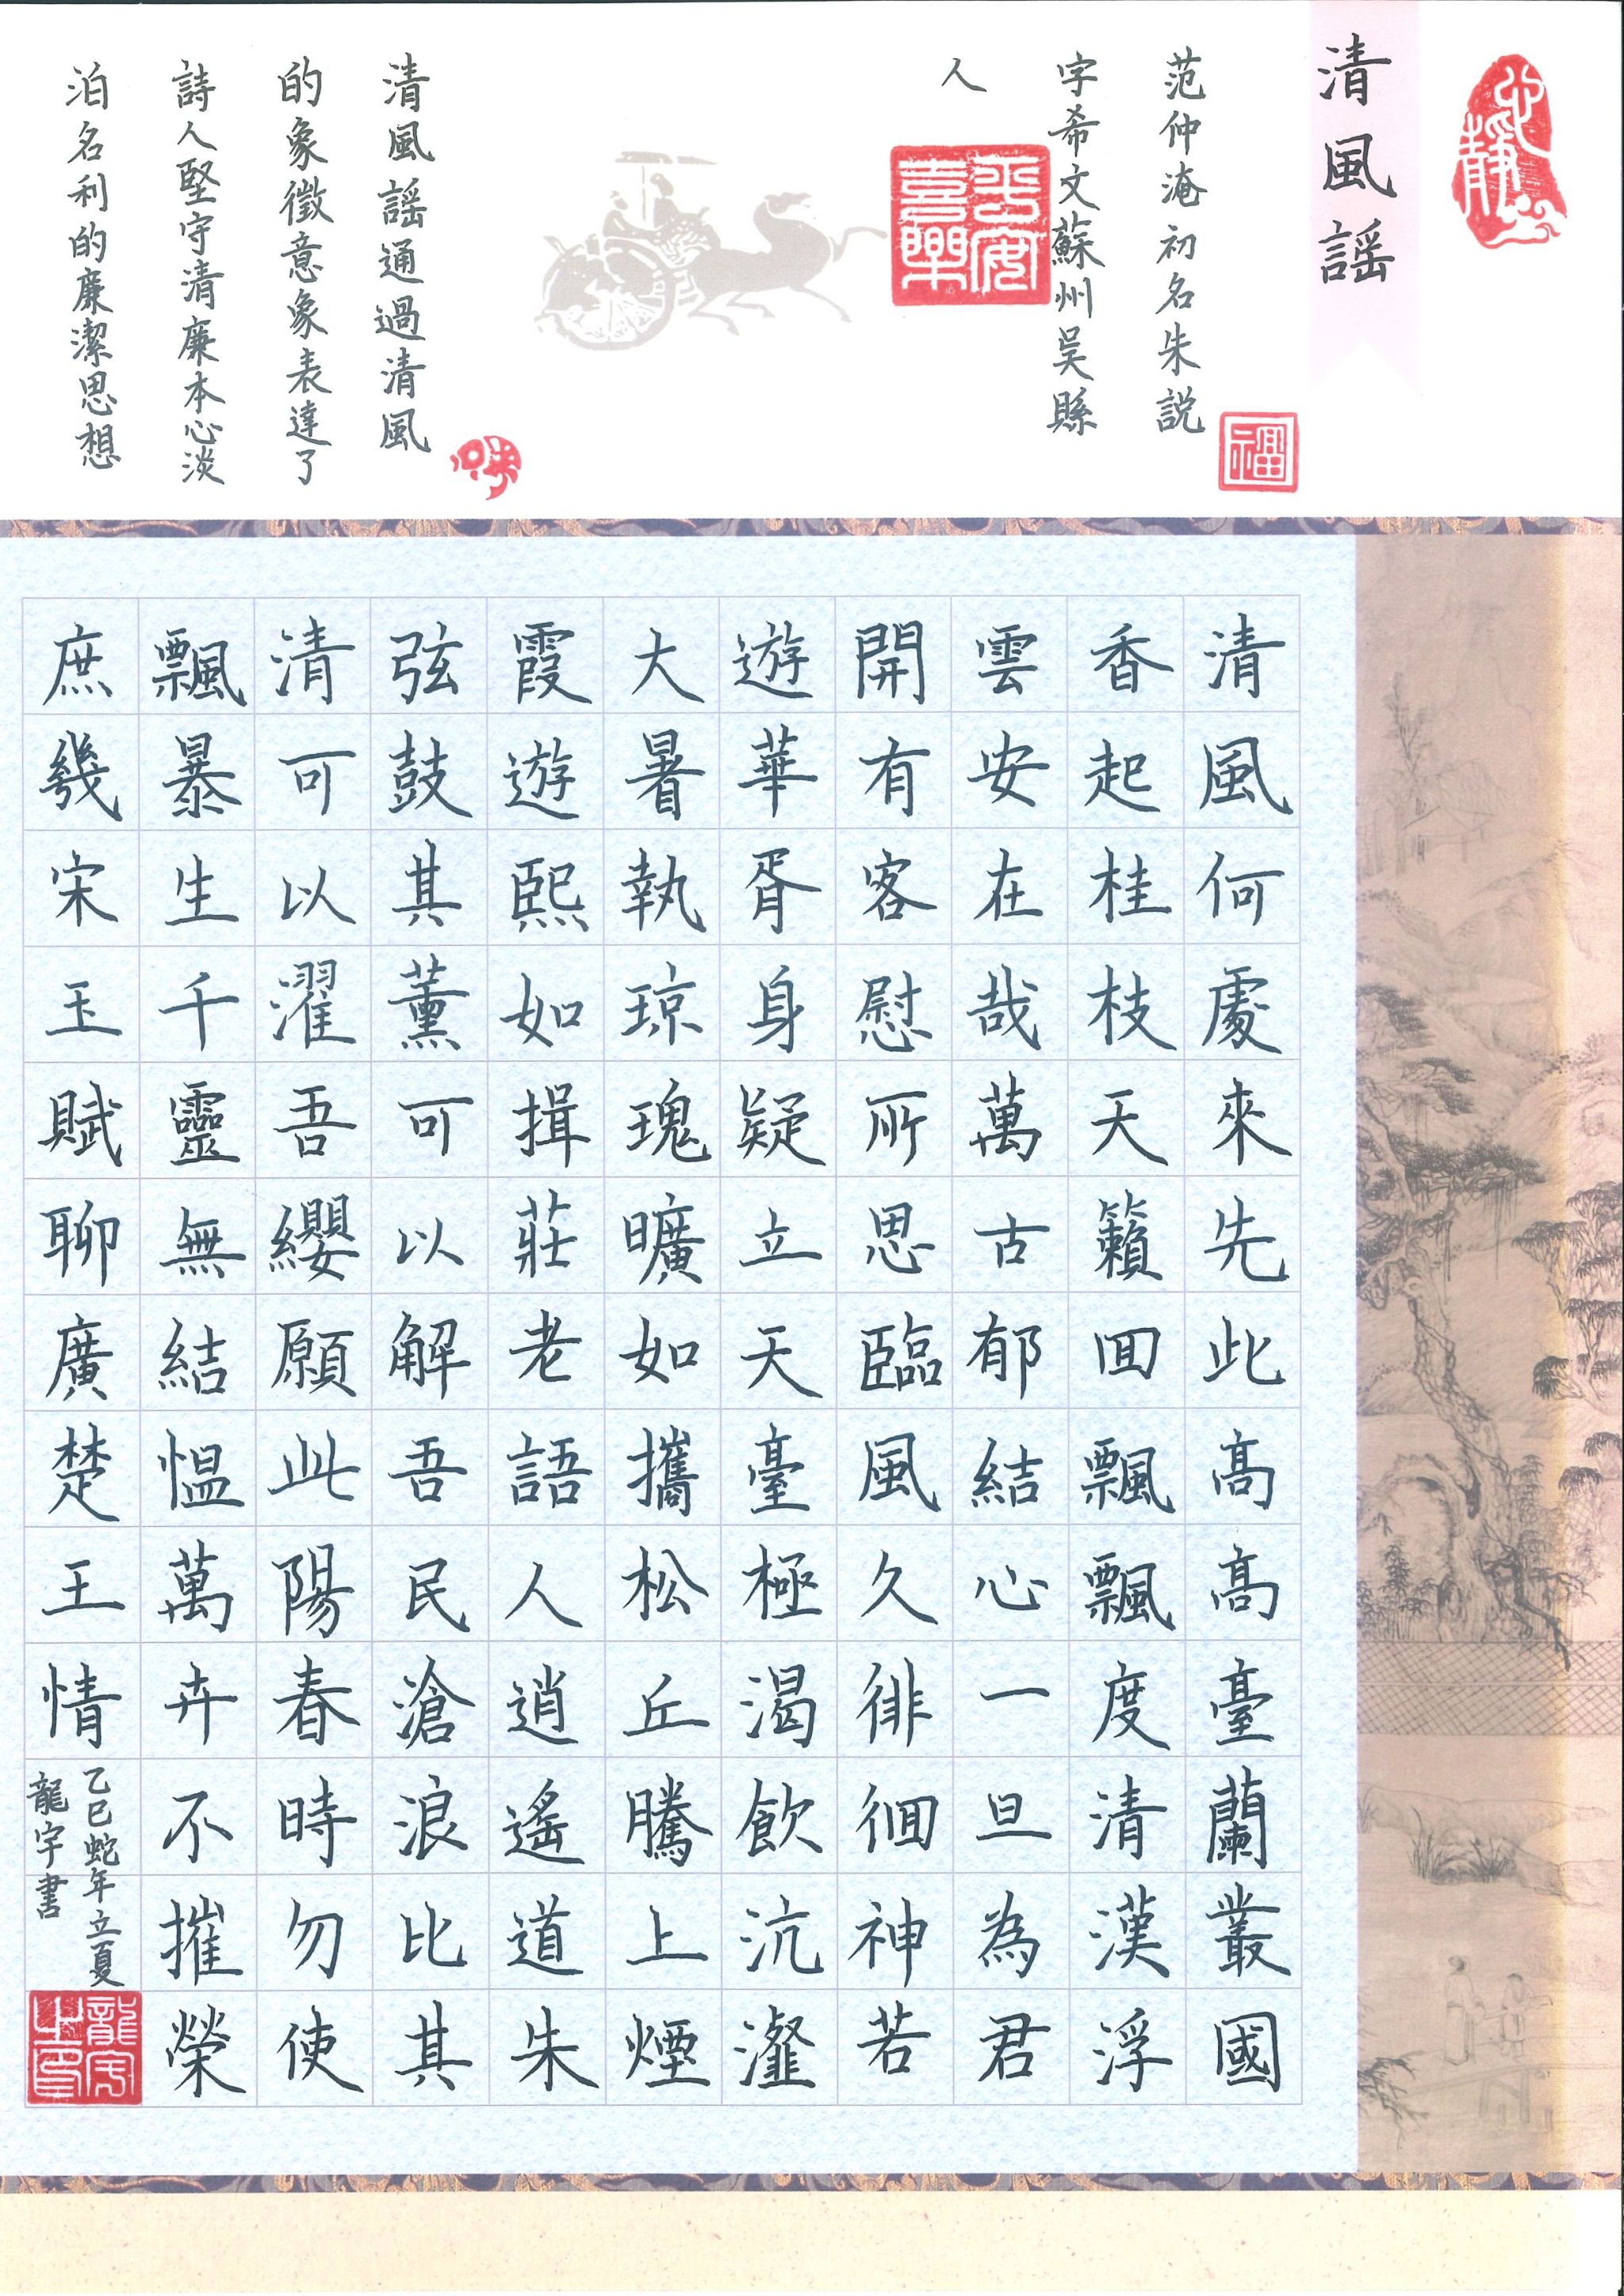 清風謡
范仲淹初名朱説
字希文蘇州吴縣
人
清風謡通過清風
的象徵意象表達了
詩人堅守清廉本心淡
泊名利的廉潔思想
心靜
福
平安喜樂
清風何處來先此高高臺蘭叢國
香起桂枝天籟回飄飄度清漢浮
雲安在哉萬古郁結心一旦為君
開有客慰所思臨風久徘徊神若
遊華胥身疑立天臺極渴飲沆瀣
大暑執琼瑰曠如攜松丘騰上煙
霞遊熙如揖莊老語人逍遙道朱
弦鼓其薰可以解吾民滄浪比其
清可以濯吾纓願此陽春時勿使
飄暴生千靈無結愠萬卉不摧榮
庶幾宋玉賦聊廣楚王情
乙巳蛇年立夏
龍宇書
龍宇之印